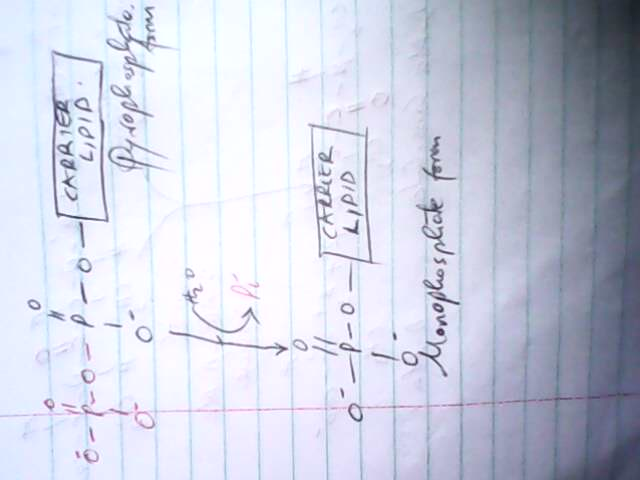 O O
|| ||
⁻O-P-O-P-O-CARRIER
LIPID.
| |
O⁻ O⁻
Pyrophosphate
form
H₂O
Pi
O
||
O⁻-P-O-CARRIER
LIPID
|
O⁻
Monophosphate form